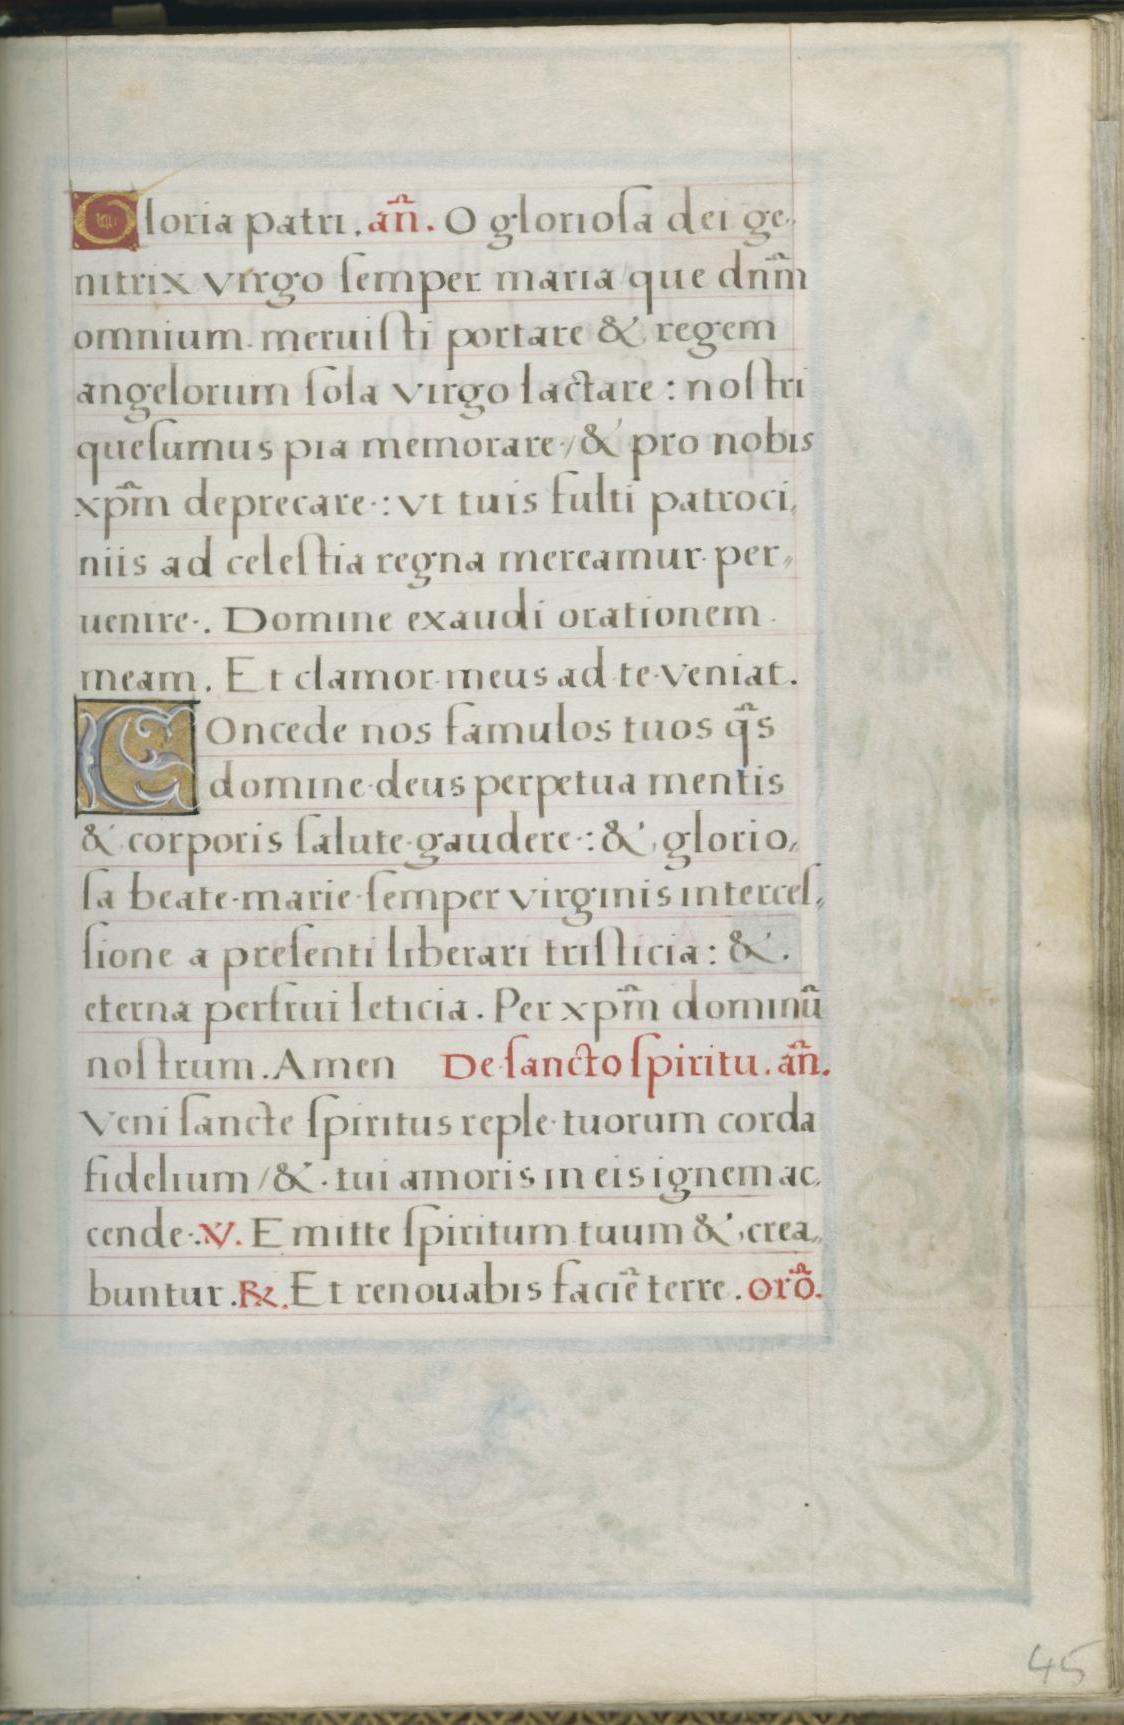 Gloria patri. añ. O glorioſa dei ge,,
nitrix virgo ſemper maria que dñm̃
omnium. meruiſti portare & regem
angelorum ſola virgo lactare : noſtri
queſumus pia memorare·/ & pro nobis
xpm̃ deprecare·: vt tuis fulti patroci,,
niis ad celeſtia regna mereamur· per,,
uenire·. Domine exaudi orationem.
meam. Et clamor meus ad te veniat.
Concede nos famulos tuos q̃s
domine deus perpetua mentis
& corporis ſalute gaudere·: & glorio,,
ſa beate marie ſemper virginis interceſ,,
ſione a preſenti liberari triſticia : &.
eterna perfrui leticia. Per xpm̃ dominũ
noſtrum. Amen De ſancto ſpiritu. añ.
Veni ſancte ſpiritus reple tuorum corda
fidelium / & tui amoris in eis ignem ac,,
cende·. ℣. Emitte ſpiritum tuum & crea,,
buntur. ℞. Et renouabis faciẽ terre. orõ.
45